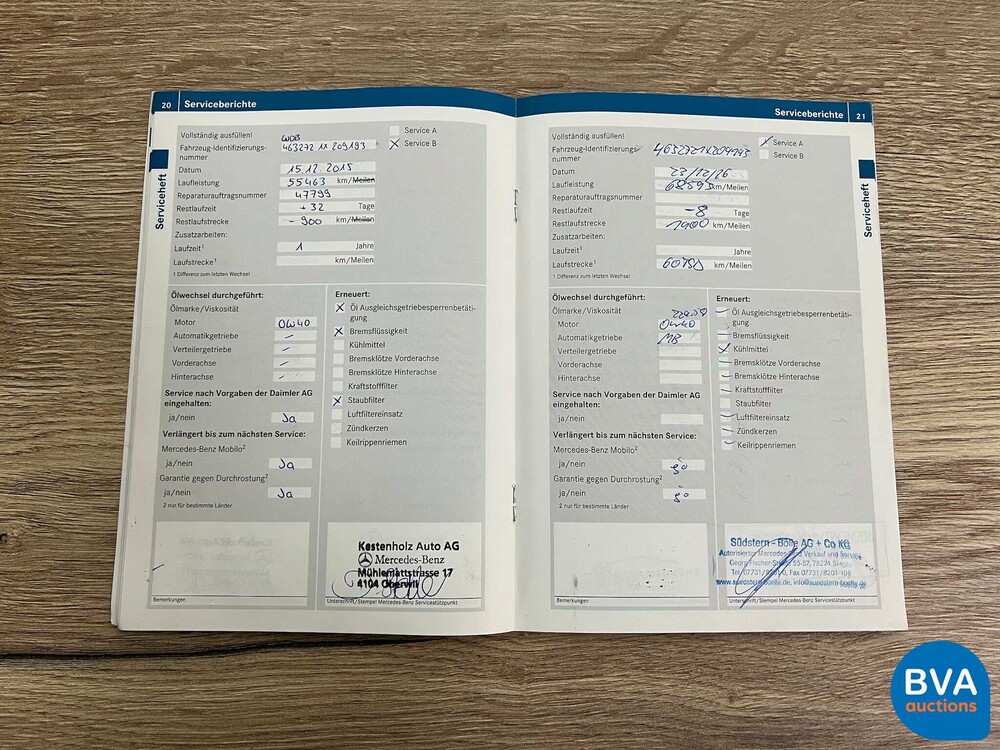 20 Serviceberichte
Vollständig ausfüllen!
Service A
Service B
Fahrzeug-Identifizierungs-
nummer
WDB
463272 1X 209193
Datum 15.12.2015
Laufleistung 55463 km/Meilen
Reparaturauftragsnummer 47799
Restlaufzeit + 32 Tage
Restlaufstrecke - 900 km/Meilen
Zusatzarbeiten:
Laufzeit¹ 1 Jahre
Laufstrecke¹ km/Meilen
1 Differenz zum letzten Wechsel
Serviceheft
Ölwechsel durchgeführt:
Ölmarke/Viskosität
Motor 0W40
Automatikgetriebe -
Verteilergetriebe -
Vorderachse -
Hinterachse -
Service nach Vorgaben der Daimler AG
eingehalten:
ja/nein Ja
Verlängert bis zum nächsten Service:
Mercedes-Benz Mobilo²
ja/nein Ja
Garantie gegen Durchrostung²
ja/nein Ja
2 nur für bestimmte Länder
Erneuert:
Öl Ausgleichsgetriebesperrenbetäti-
gung
Bremsflüssigkeit
Kühlmittel
Bremsklötze Vorderachse
Bremsklötze Hinterachse
Kraftstofffilter
Staubfilter
Luftfiltereinsatz
Zündkerzen
Keilrippenriemen
Kestenholz Auto AG
Mercedes-Benz
Mühlemattstrasse 17
4104 Oberwil
Bemerkungen
Unterschrift/Stempel Mercedes-Benz Servicestützpunkt
Serviceberichte 21
Vollständig ausfüllen!
Service A
Service B
Fahrzeug-Identifizierungs-
nummer 4632721X209193
Datum 23/12/16
Laufleistung km/Meilen
Reparaturauftragsnummer
Restlaufzeit -8 Tage
Restlaufstrecke 1900 km/Meilen
Zusatzarbeiten:
Laufzeit¹ Jahre
Laufstrecke¹ km/Meilen
1 Differenz zum letzten Wechsel
Serviceheft
Ölwechsel durchgeführt:
Ölmarke/Viskosität
Motor 0W40
Automatikgetriebe MB
Verteilergetriebe
Vorderachse
Hinterachse
Service nach Vorgaben der Daimler AG
eingehalten:
ja/nein
Verlängert bis zum nächsten Service:
Mercedes-Benz Mobilo²
ja/nein
Garantie gegen Durchrostung²
ja/nein
2 nur für bestimmte Länder
Erneuert:
Öl Ausgleichsgetriebesperrenbetäti-
gung
Bremsflüssigkeit
Kühlmittel
Bremsklötze Vorderachse
Bremsklötze Hinterachse
Kraftstofffilter
Staubfilter
Luftfiltereinsatz
Zündkerzen
Keilrippenriemen
Südstern - Bölle AG + Co KG
Autorisierter Mercedes-Benz Verkauf und Service
Georg-Fischer-Straße 55-57, 78224 Singen
Tel. 07731/8201-0, Fax 07731/8201-108
www.suedstern-boelle.de, info@suedstern-boelle.de
Bemerkungen
Unterschrift/Stempel Mercedes-Benz Servicestützpunkt
BVA
auctions